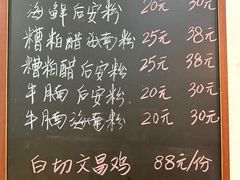 海鲜后安粉 20元 30元
糟粕醋海葡粉 25元 38元
糟粕醋后安粉 25元 38元
牛腩后安粉 20元 30元
牛腩海葡粉 20元 30元
白切文昌鸡 88元/份